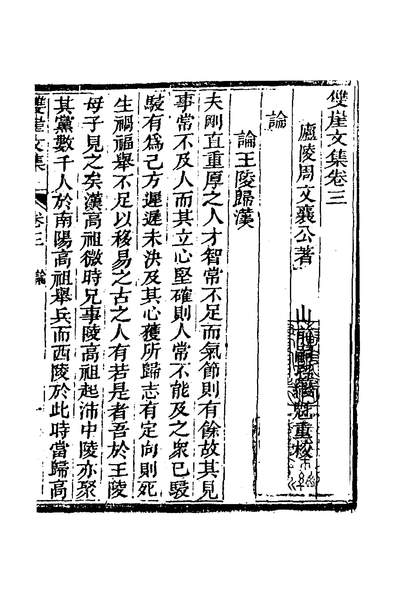 雙崖文集卷三
廬陵周文襄公著
山
重校
論
論王陵歸漢
夫剛直重厚之人才智常不足而氣節則有餘故其見
事常不及人而其立心堅確則人常不能及之衆已駸
駸有為己方遲遲未決及其心獲所歸志有定向則死
生禍福舉不足以移易之古之人有若是者吾於王陵
母子見之矣漢高祖微時兄事陵高祖起沛中陵亦聚
其黨數千人於南陽高祖舉兵而西陵於此時當歸高
雙崖文集
卷三
論